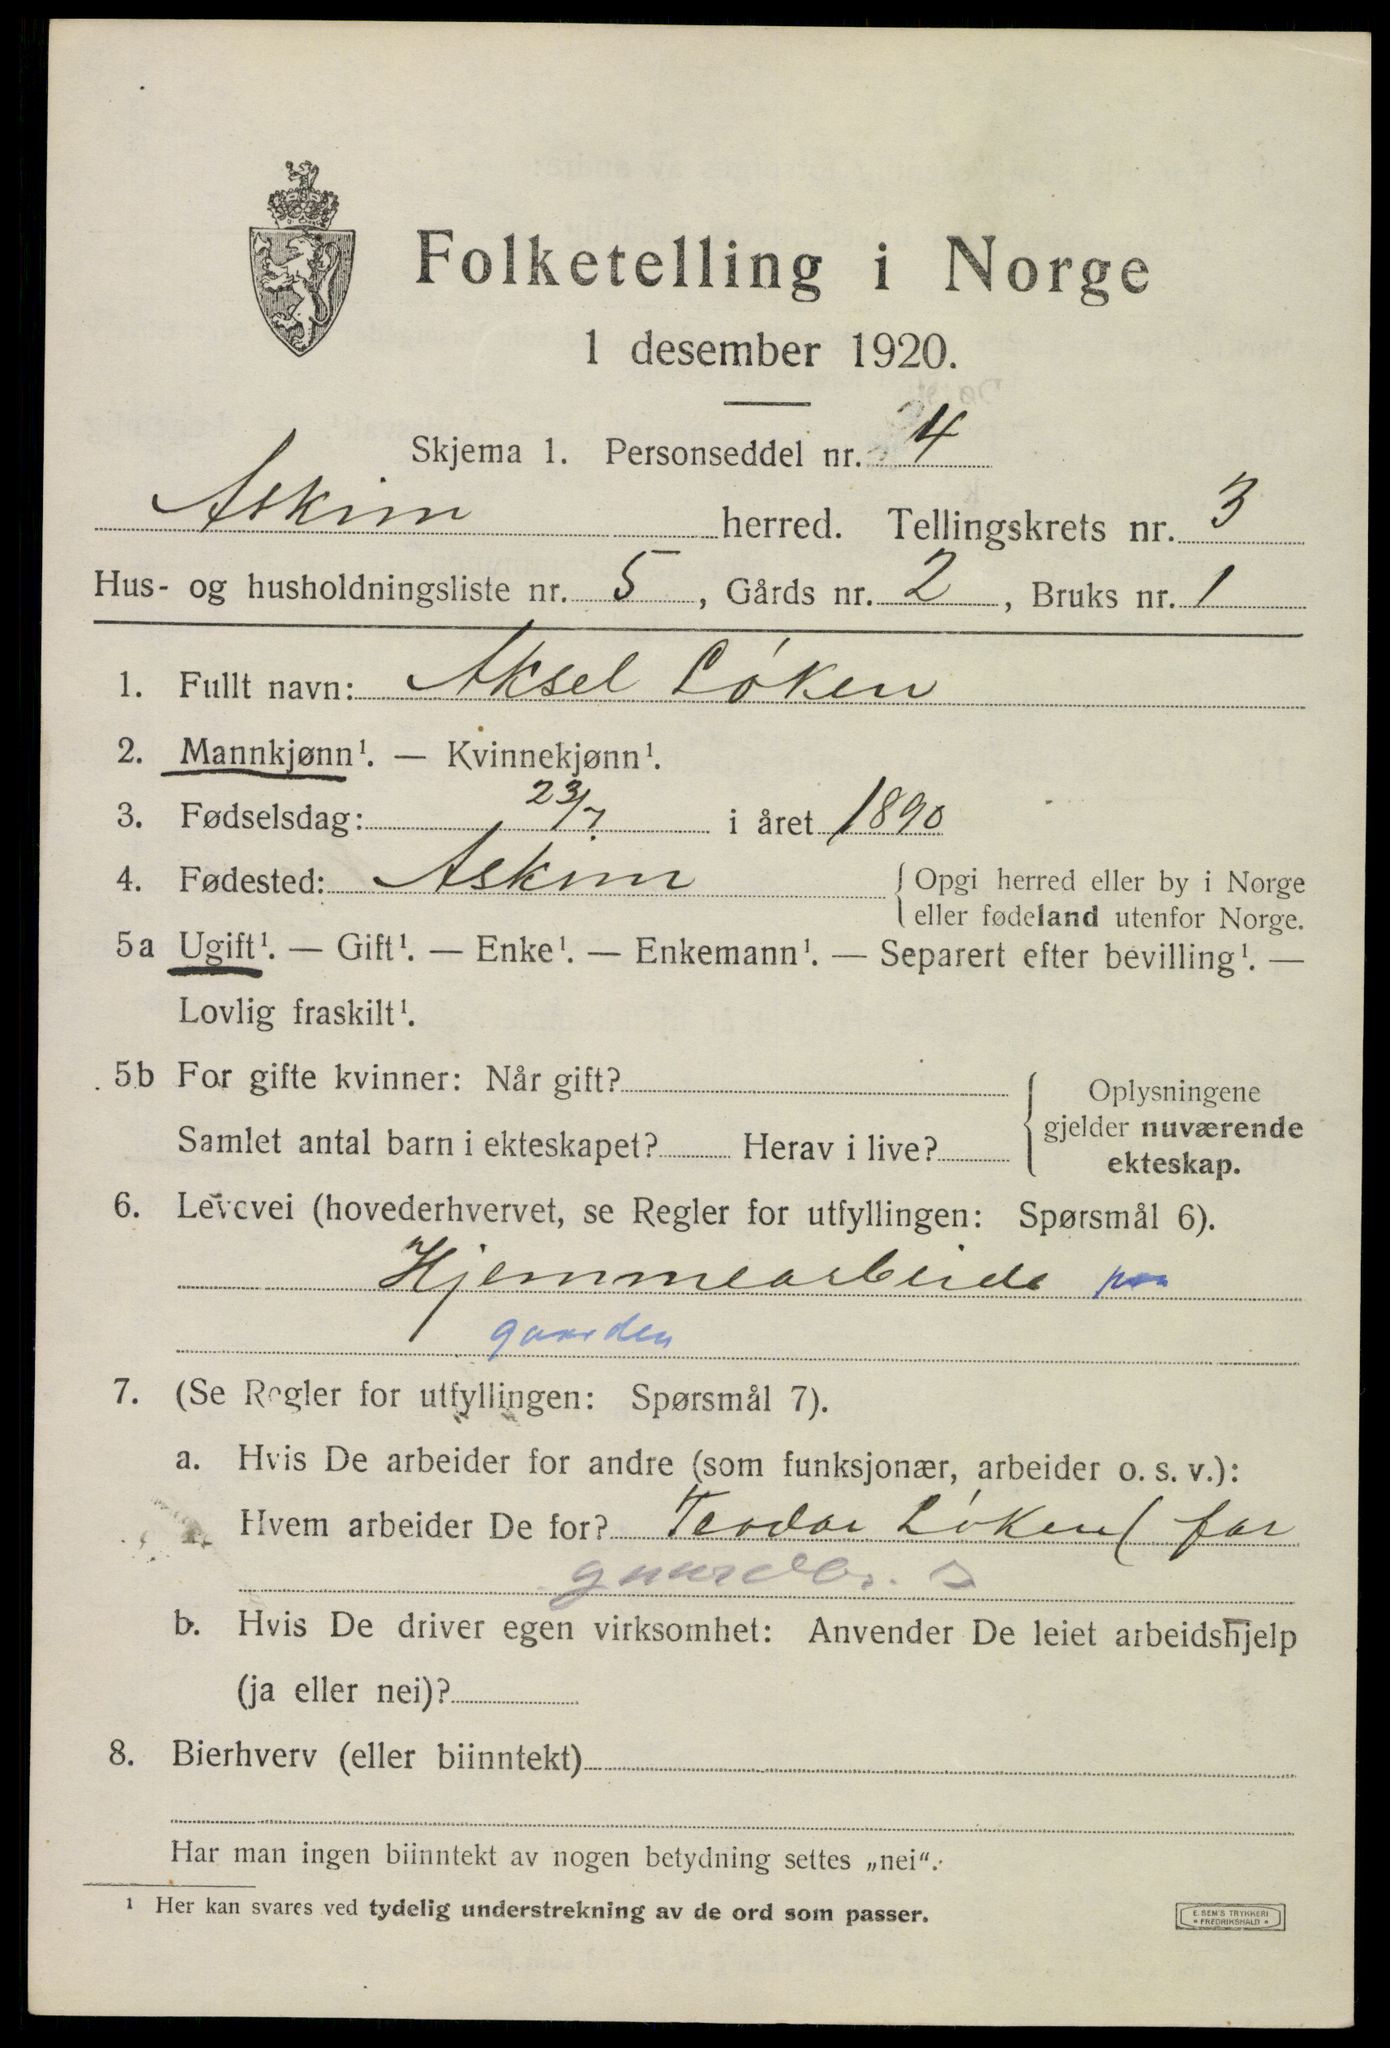 Folketelling i Norge
1 desember 1920.
Skjema 1. Personseddel nr. 4
Askim herred. Tellingskrets nr. 3
Hus- og husholdningsliste nr. 5, Gårds nr. 2, Bruks nr. 1
1. Fullt navn: Aksel Løken
2. Mannkjønn¹. — Kvinnekjønn¹.
3. Fødselsdag: 23/7 i året 1890
4. Fødested: Askim { Opgi herred eller by i Norge
eller fødeland utenfor Norge.
5a Ugift¹. — Gift¹. — Enke¹. — Enkemann¹. — Separert efter bevilling¹. —
Lovlig fraskilt¹.
5b For gifte kvinner: Når gift?
Samlet antal barn i ekteskapet? Herav i live?
Oplysningene
gjelder nuværende
ekteskap.
6. Levevei (hovederhvervet, se Regler for utfyllingen: Spørsmål 6).
Hjemmearbeide paa
gaarden
7. (Se Regler for utfyllingen: Spørsmål 7).
a. Hvis De arbeider for andre (som funksjonær, arbeider o. s. v.):
Hvem arbeider De for? Teodor Løken ( far
gaardbr.
b. Hvis De driver egen virksomhet: Anvender De leiet arbeidshjelp
(ja eller nei)?
8. Bierhverv (eller biinntekt)
Har man ingen biinntekt av nogen betydning settes „nei“.
¹ Her kan svares ved tydelig understrekning av de ord som passer.
E. SEM'S TRYKKERI
* FREDRIKSHALD *